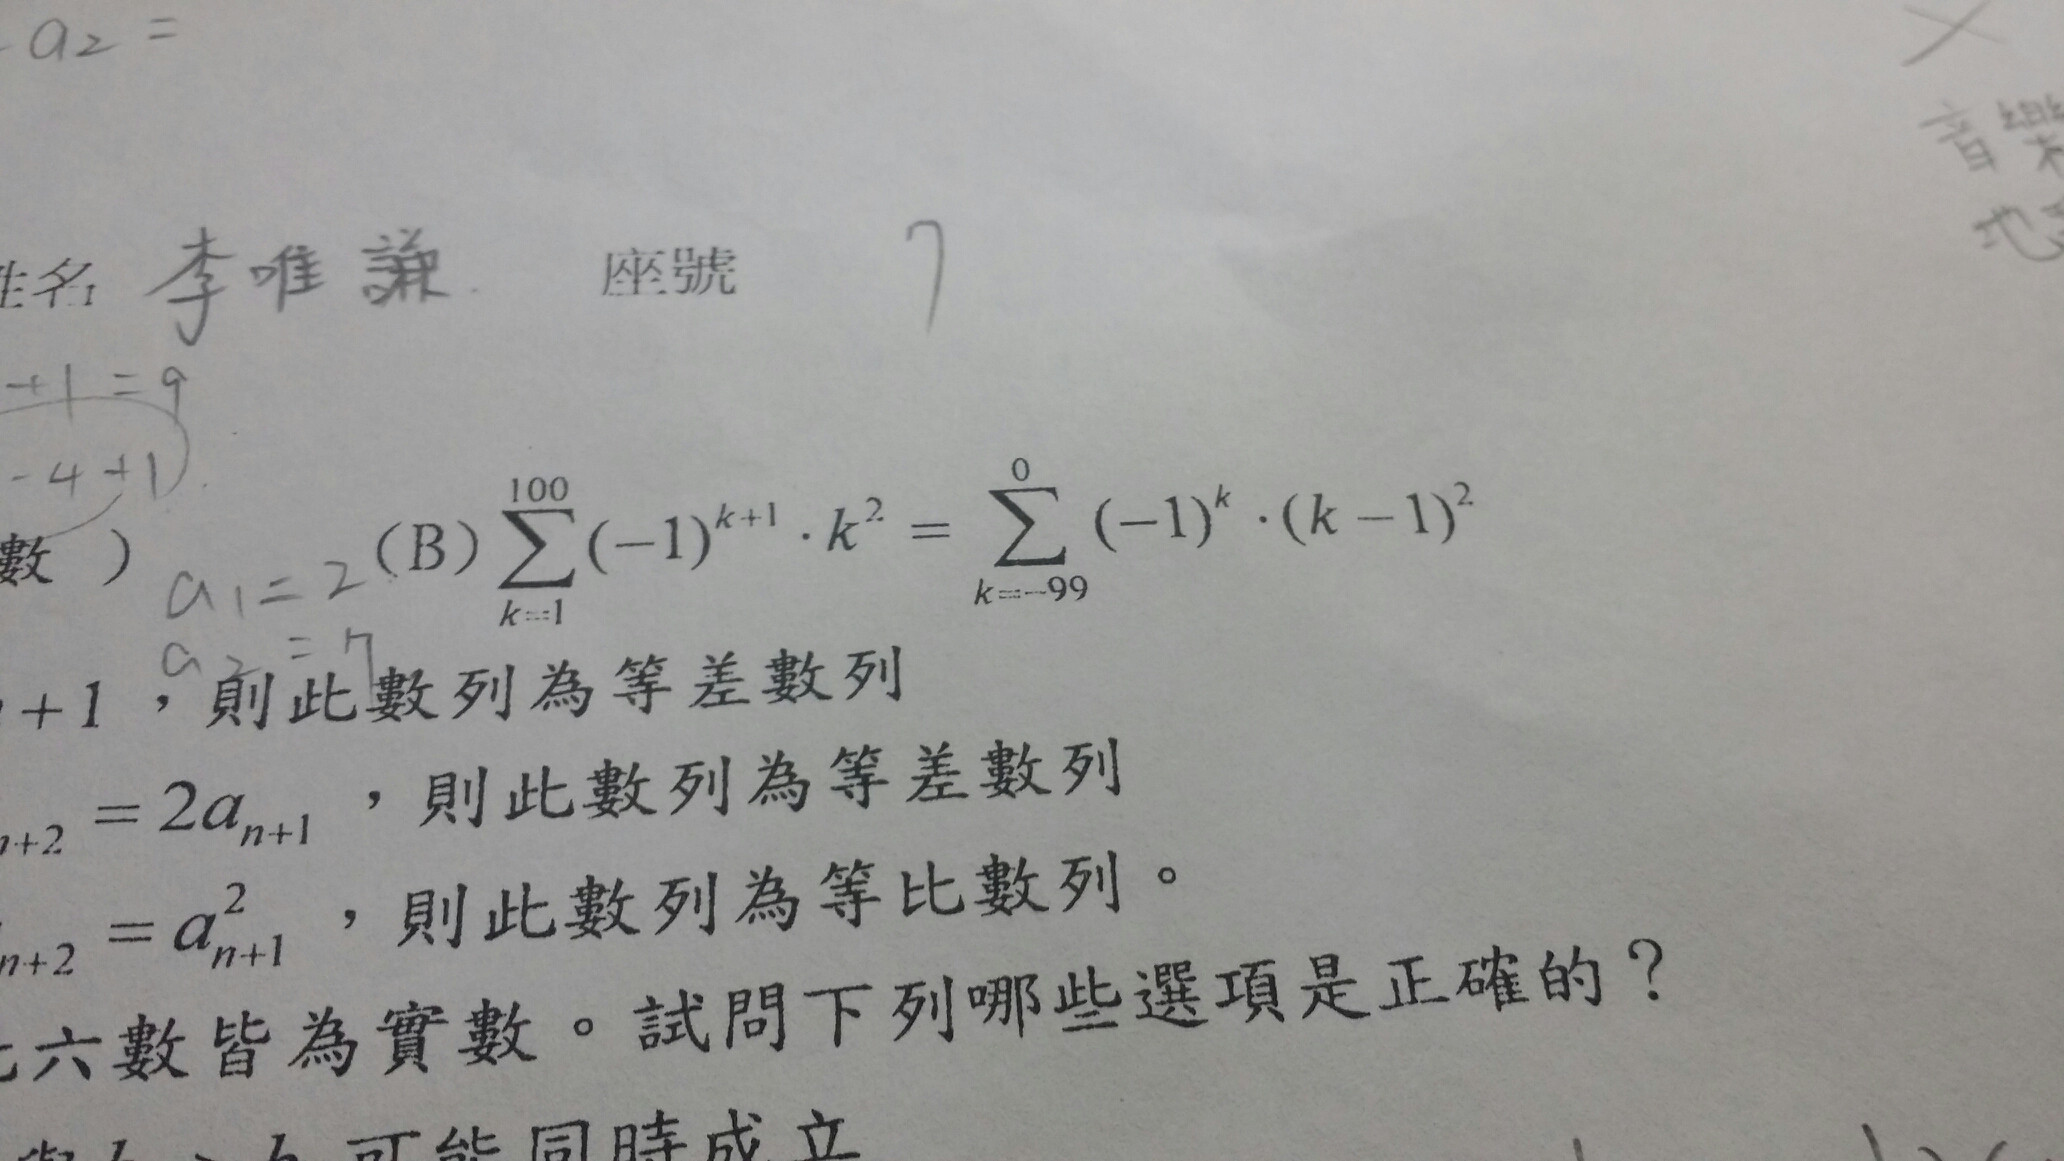 a₂ =
音樂
姓名 李唯謙 座號 7
+1=9
-4+1
數 ) a₁=2 (B) \sum_{k=1}^{100} (-1)^{k+1} · k^2 = \sum_{k=-99}^{0} (-1)^k · (k-1)^2
a₂=7
+1，則此數列為等差數列
n+2 = 2a_{n+1}，則此數列為等差數列
n+2 = a_{n+1}^2，則此數列為等比數列。
六數皆為實數。試問下列哪些選項是正確的？
可能同時成立